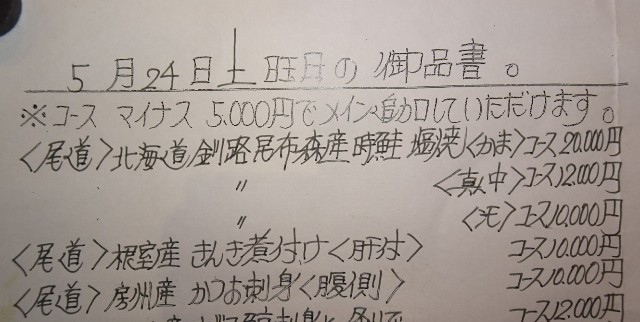 5月24日土曜日の御品書。
※コース マイナス 5.000円でメイン追加していただけます。
〈尾道〉北海道釧路昆布森産時鮭 塩焼〈かま〉コース20.000円
〃 〈真中〉コース12.000円
〃 コース10.000円
〈尾道〉根室産 きんき煮付け〈肝付〉 コース10.000円
〈尾道〉房州産 かつお刺身〈腹側〉 コース10.000円
コース12.000円